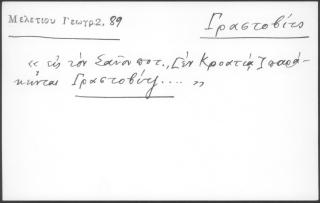 Μελετίου Γεωγρ 2, 89
Γραστοβίτς
« εἰς τὸν Σαῦον ποτ., [ἐν Κροατίᾳ] παρά-
κεινται Γραστοβίτς.... »